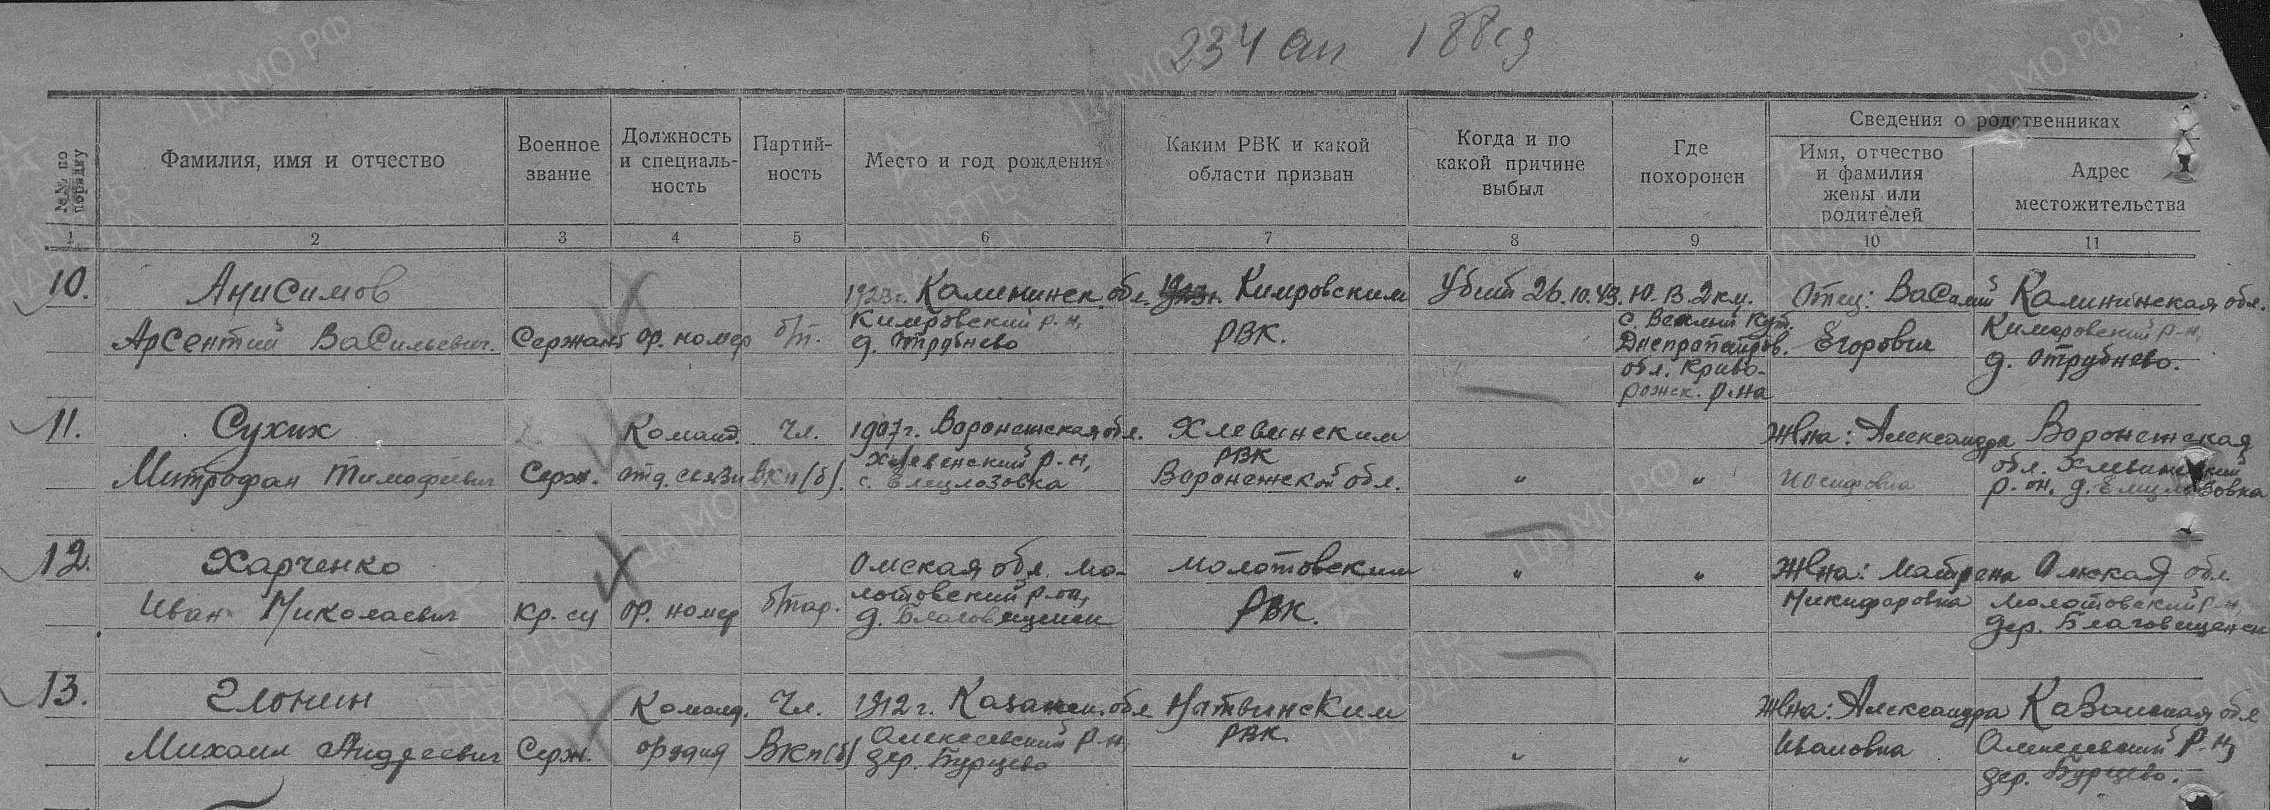 234 ап 188 сд
Сведения о родственниках
№№ по порядку
Фамилия, имя и отчество
Военное звание
Должность и специаль-ность
Партий-ность
Место и год рождения
Каким РВК и какой области призван
Когда и по какой причине выбыл
Где похоронен
Имя, отчество и фамилия жены или родителей
Адрес местожительства
1 2 3 4 5 6 7 8 9 10 11
10.
Анисимов
Арсентий Васильевич.
Сержант
ор. номер
б/п.
1923г. Калининск. обл.
Кимровский р-н,
д. Отрубнево
1923г. Кимровским
РВК.
Убит 26.10.43.
Ю-В. 2 км.
с. Веселый Кут.
Днепропетров.
обл. Криво-
рожск. р-на
Отец: Василий
Егорович
Калининская обл.
Кимровский р-н,
д. Отрубнево.
11.
Сухих
Митрофан Тимофеевич
Серж.
Команд.
отд. связи
Чл.
ВКП(б).
1907г. Воронежская обл.
Хлевенский р-н,
с.
Хлевинским
РВК
Воронежской обл.
"
"
Жена: Александра
Иосифовна
Воронежская
обл. Хлевинский
р-он, д.
12.
Харченко
Иван Николаевич
Кр-ец
ор. номер
б/пар.
Омская обл. Мо-
лотовский р-он,
д. Благовещенск
Молотовским
РВК.
"
"
Жена: Матрена
Никифоровна
Омская обл.
Молотовский р-н,
дер. Благовещенск
13.
Елонин
Михаил Андреевич
Серж.
Команд.
орудия
Чл.
ВКП(б)
1912г. Казанск. обл.
Алексеевский р-н,
дер. Бурцево
РВК.
"
"
Жена: Александра
Ивановна
Казанская обл
Алексеевский р-н,
дер. Бурцево.
ЦАМО РФ
ПАМЯТЬ НАРОДА